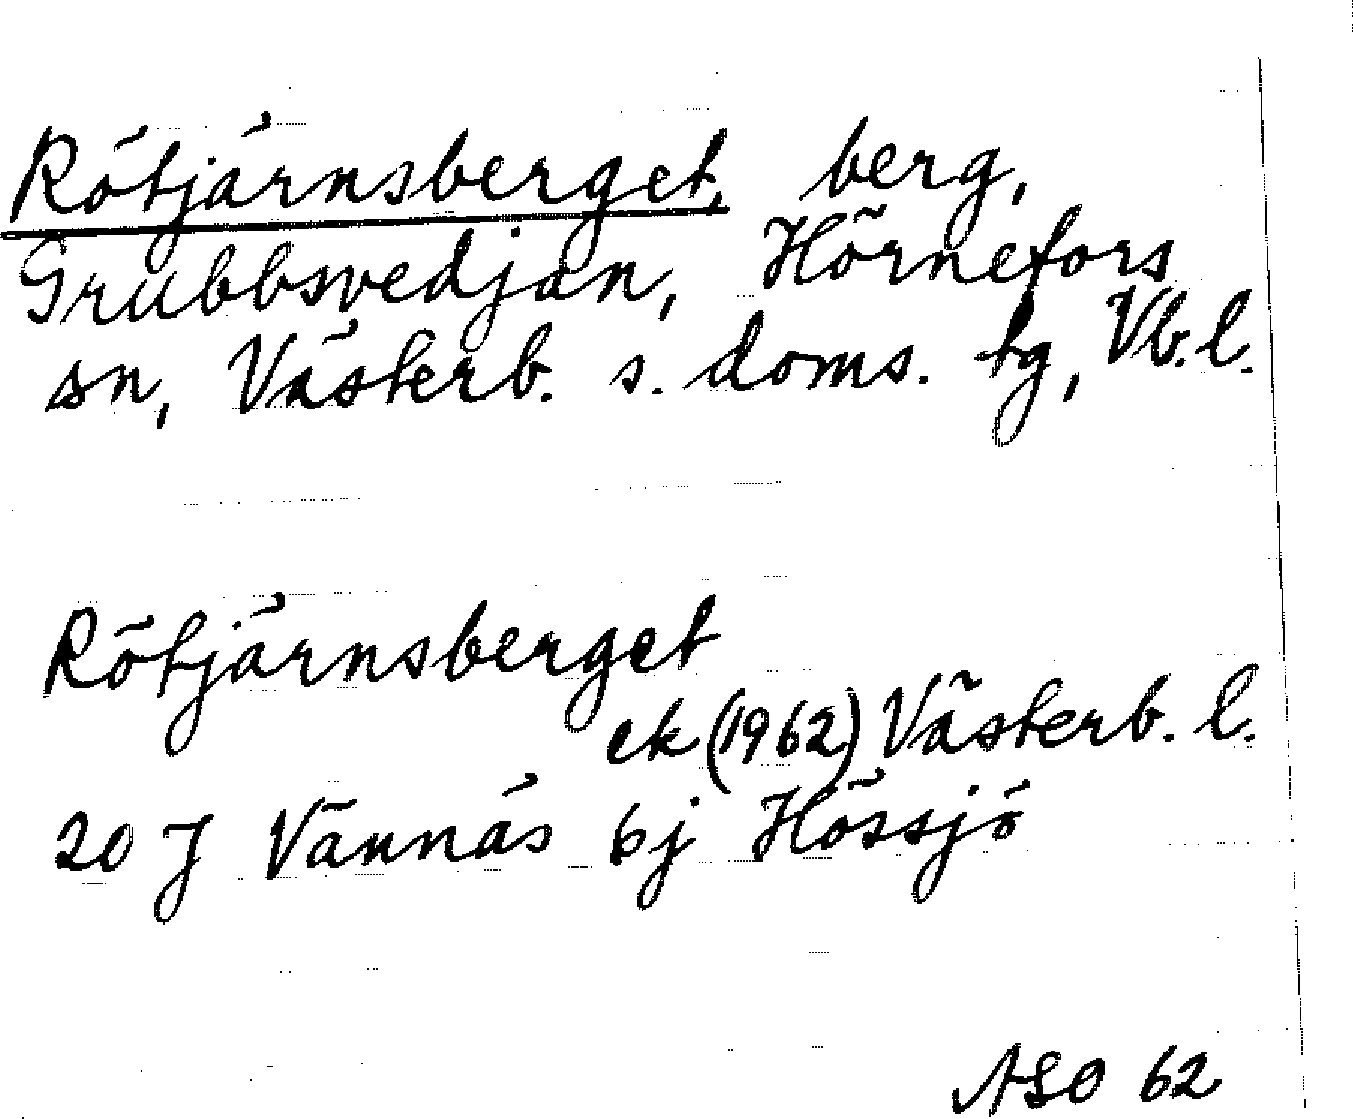 Rötjärnsberget, berg,
Grubbsvedjan, Hörnefors
sn, Västerb. s. doms. tg, Vb. l.
Rötjärnsberget
ek (1962) Västerb. l.
20 J Vännäs 6j Hössjö
ASO 62